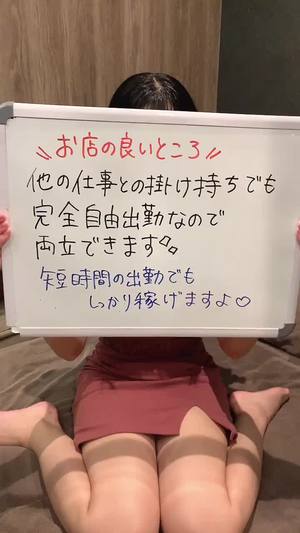 \\お店の良いところ//
他の仕事との掛け持ちでも
完全自由出勤なので
両立できます
短時間の出勤でも
しっかり稼げますよ♡